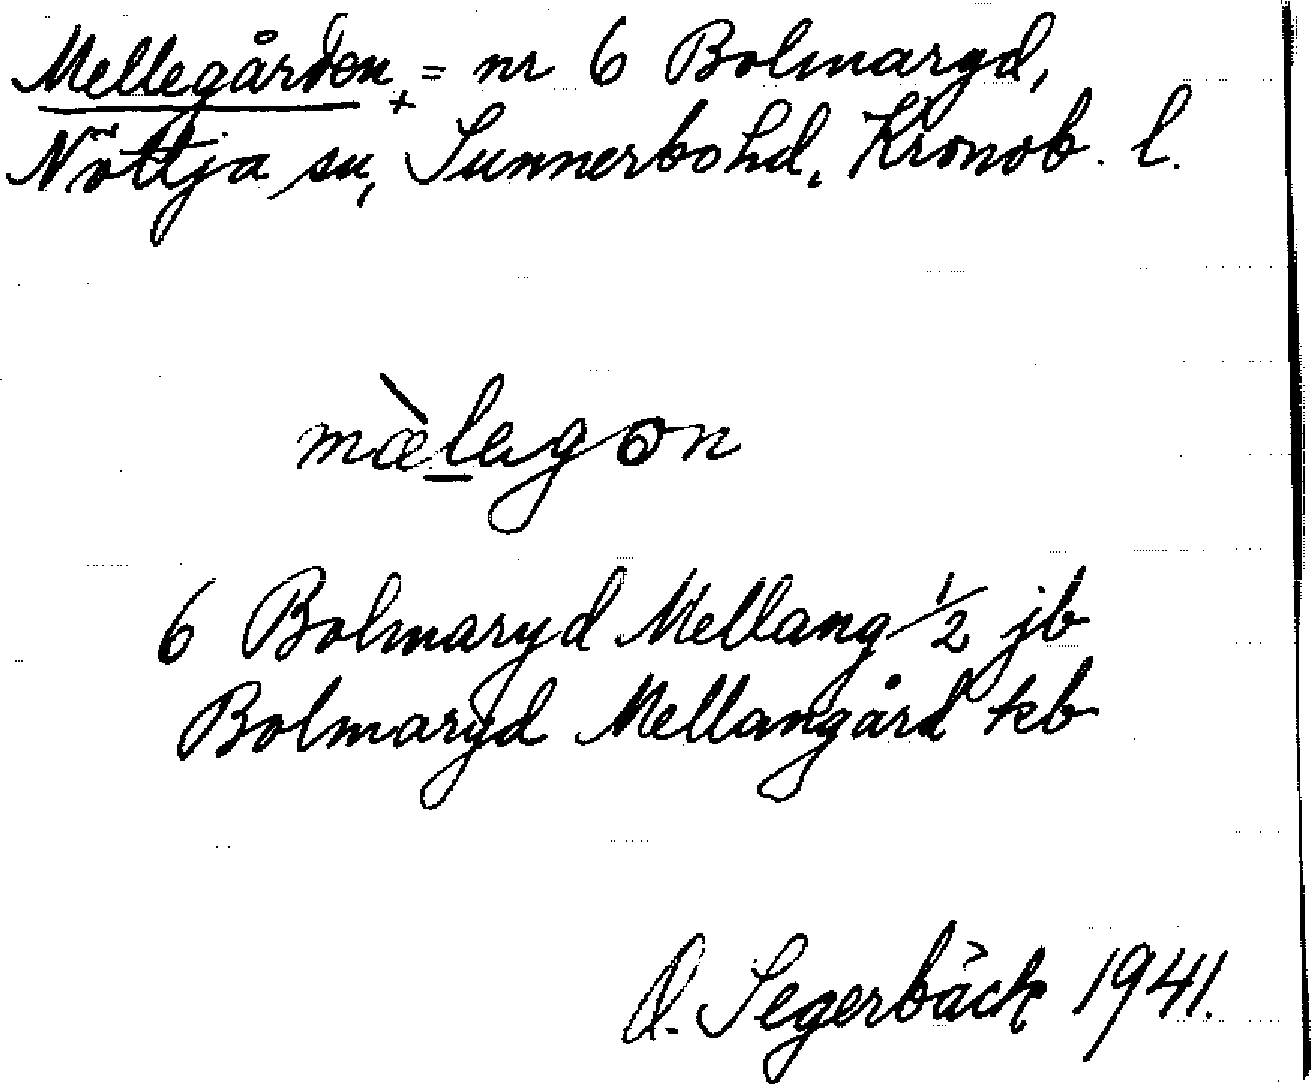 Mellegården + = nr 6 Bolmaryd,
Nöttja sn, Sunnerbo hd, Kronob. l.
mæ̀legɷn
6 Bolmaryd Mellang 1/2 jb
Bolmaryd Mellangård kb
O. Segerbäck 1941.